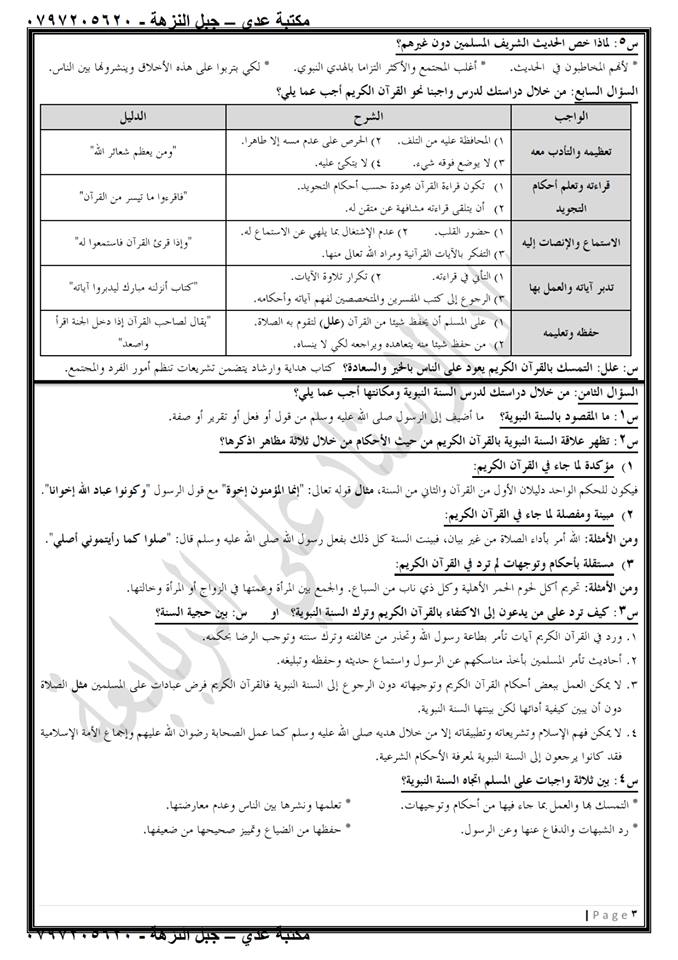 مكتبة عدي – جبل النزهة - ٠٧٩٧٢٠٥٦٢٠
س٥: لماذا خص الحديث الشريف المسلمين دون غيرهم؟
* لأنهم المخاطبون في الحديث. * أغلب المجتمع والأكثر التزاما بالهدي النبوي. * لكي يتربوا على هذه الأخلاق وينشرونها بين الناس.
السؤال السابع: من خلال دراستك لدرس واجبنا نحو القرآن الكريم أجب عما يلي؟
الواجب الشرح الدليل
تعظيمه والتأدب معه
١) المحافظة عليه من التلف. ٢) الحرص على عدم مسه إلا طاهرا.
٣) لا يوضع فوقه شيء. ٤) لا يتكئ عليه.
"ومن يعظم شعائر الله"
قراءته وتعلم أحكام
التجويد
١) تكون قراءة القرآن مجودة حسب أحكام التجويد.
٢) أن يتلقى قراءته مشافهة عن متقن له.
"فاقرءوا ما تيسر من القرآن"
الاستماع والإنصات إليه
١) حضور القلب. ٢) عدم الإشتغال بما يلهي عن الاستماع له.
٣) التفكر بالآيات القرآنية ومراد الله تعالى منها.
"وإذا قرئ القرآن فاستمعوا له"
تدبر آياته والعمل بها
١) التأني في قراءته. ٢) تكرار تلاوة الآيات.
٣) الرجوع إلى كتب المفسرين والمتخصصين لفهم آياته وأحكامه.
"كتاب أنزلنه مبارك ليدبروا آياته"
حفظه وتعليمه
١) على المسلم أن يحفظ شيئا من القرآن (علل) لتقوم به الصلاة.
٢) من حفظ شيئا منه يتعاهده ويراجعه لكي لا ينساه.
"يقال لصاحب القرآن إذا دخل الجنة اقرأ
واصعد"
س: علل: التمسك بالقرآن الكريم يعود على الناس بالخير والسعادة؟ كتاب هداية وارشاد يتضمن تشريعات تنظم أمور الفرد والمجتمع.
السؤال الثامن: من خلال دراستك لدرس السنة النبوية ومكانتها أجب عما يلي؟
س١: ما المقصود بالسنة النبوية؟ ما أضيف إلى الرسول صلى الله عليه وسلم من قول أو فعل أو تقرير أو صفة.
س٢: تظهر علاقة السنة النبوية بالقرآن الكريم من حيث الأحكام من خلال ثلاثة مظاهر اذكرها؟
١) مؤكدة لما جاء في القرآن الكريم:
فيكون للحكم الواحد دليلان الأول من القرآن والثاني من السنة، مثال قوله تعالى: "إنما المؤمنون إخوة" مع قول الرسول "وكونوا عباد الله إخوانا".
٢) مبينة ومفصلة لما جاء في القرآن الكريم:
ومن الأمثلة: الله أمر بأداء الصلاة من غير بيان، فبينت السنة كل ذلك بفعل رسول الله صلى الله عليه وسلم قال: "صلوا كما رأيتموني أصلي".
٣) مستقلة بأحكام وتوجهات لم ترد في القرآن الكريم:
ومن الأمثلة: تحريم أكل لحوم الحمر الأهلية وكل ذي ناب من السباع. والجمع بين المرأة وعمتها في الزواج أو المرأة وخالتها.
س٣: كيف ترد على من يدعون إلى الاكتفاء بالقرآن الكريم وترك السنة النبوية؟ او س: بين حجية السنة؟
١. ورد في القرآن الكريم آيات تأمر بطاعة رسول الله وتحذر من مخالفته وترك سنته وتوجب الرضا بحكمه.
٢. أحاديث تأمر المسلمين بأخذ مناسكهم عن الرسول واستماع حديثه وحفظه وتبليغه.
٣. لا يمكن العمل ببعض أحكام القرآن الكريم وتوجيهاته دون الرجوع إلى السنة النبوية فالقرآن الكريم فرض عبادات على المسلمين مثل الصلاة
دون أن يبين كيفية أدائها لكن بينتها السنة النبوية.
٤. لا يمكن فهم الإسلام وتشريعاته وتطبيقاته إلا من خلال هديه صلى الله عليه وسلم كما عمل الصحابة رضوان الله عليهم وإجماع الأمة الإسلامية
فقد كانوا يرجعون إلى السنة النبوية لمعرفة الأحكام الشرعية.
س٤: بين ثلاثة واجبات على المسلم اتجاه السنة النبوية؟
* التمسك بها والعمل بما جاء فيها من أحكام وتوجيهات. * تعلمها ونشرها بين الناس وعدم معارضتها.
* رد الشبهات والدفاع عنها وعن الرسول. * حفظها من الضياع وتمييز صحيحها من ضعيفها.
| Page ٣
مكتبة عدي – جبل النزهة - ٠٧٩٧٢٠٥٦٢٠